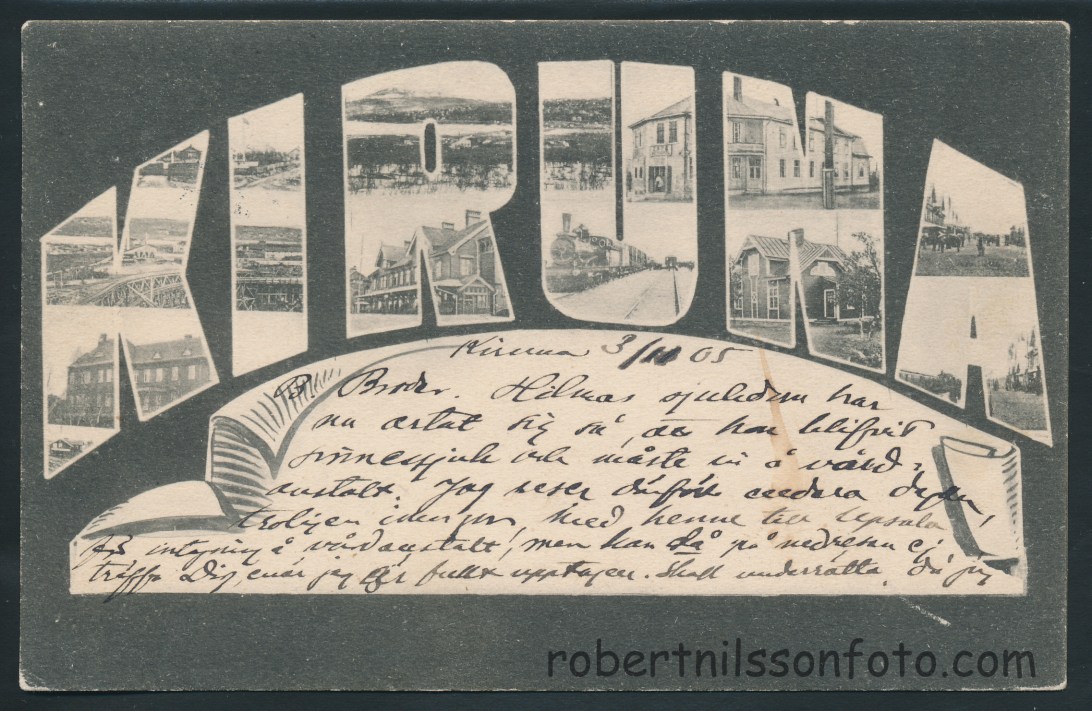 KIRUNA
Kiruna 3/11 05
B. Broder. Hilmas sjukdom har
nu artat sig så, att hon blifvit
sinnessjuk och måste in å vård-
anstalt. Jag reser därför endera dagen,
troligen i morgon, med henne till Upsala
intagning å vårdanstalt, men kan då på nedresan ej
träffa Dig, enär jag är fullt upptagen. Skall underrätta, då jag
robertnilssonfoto.com